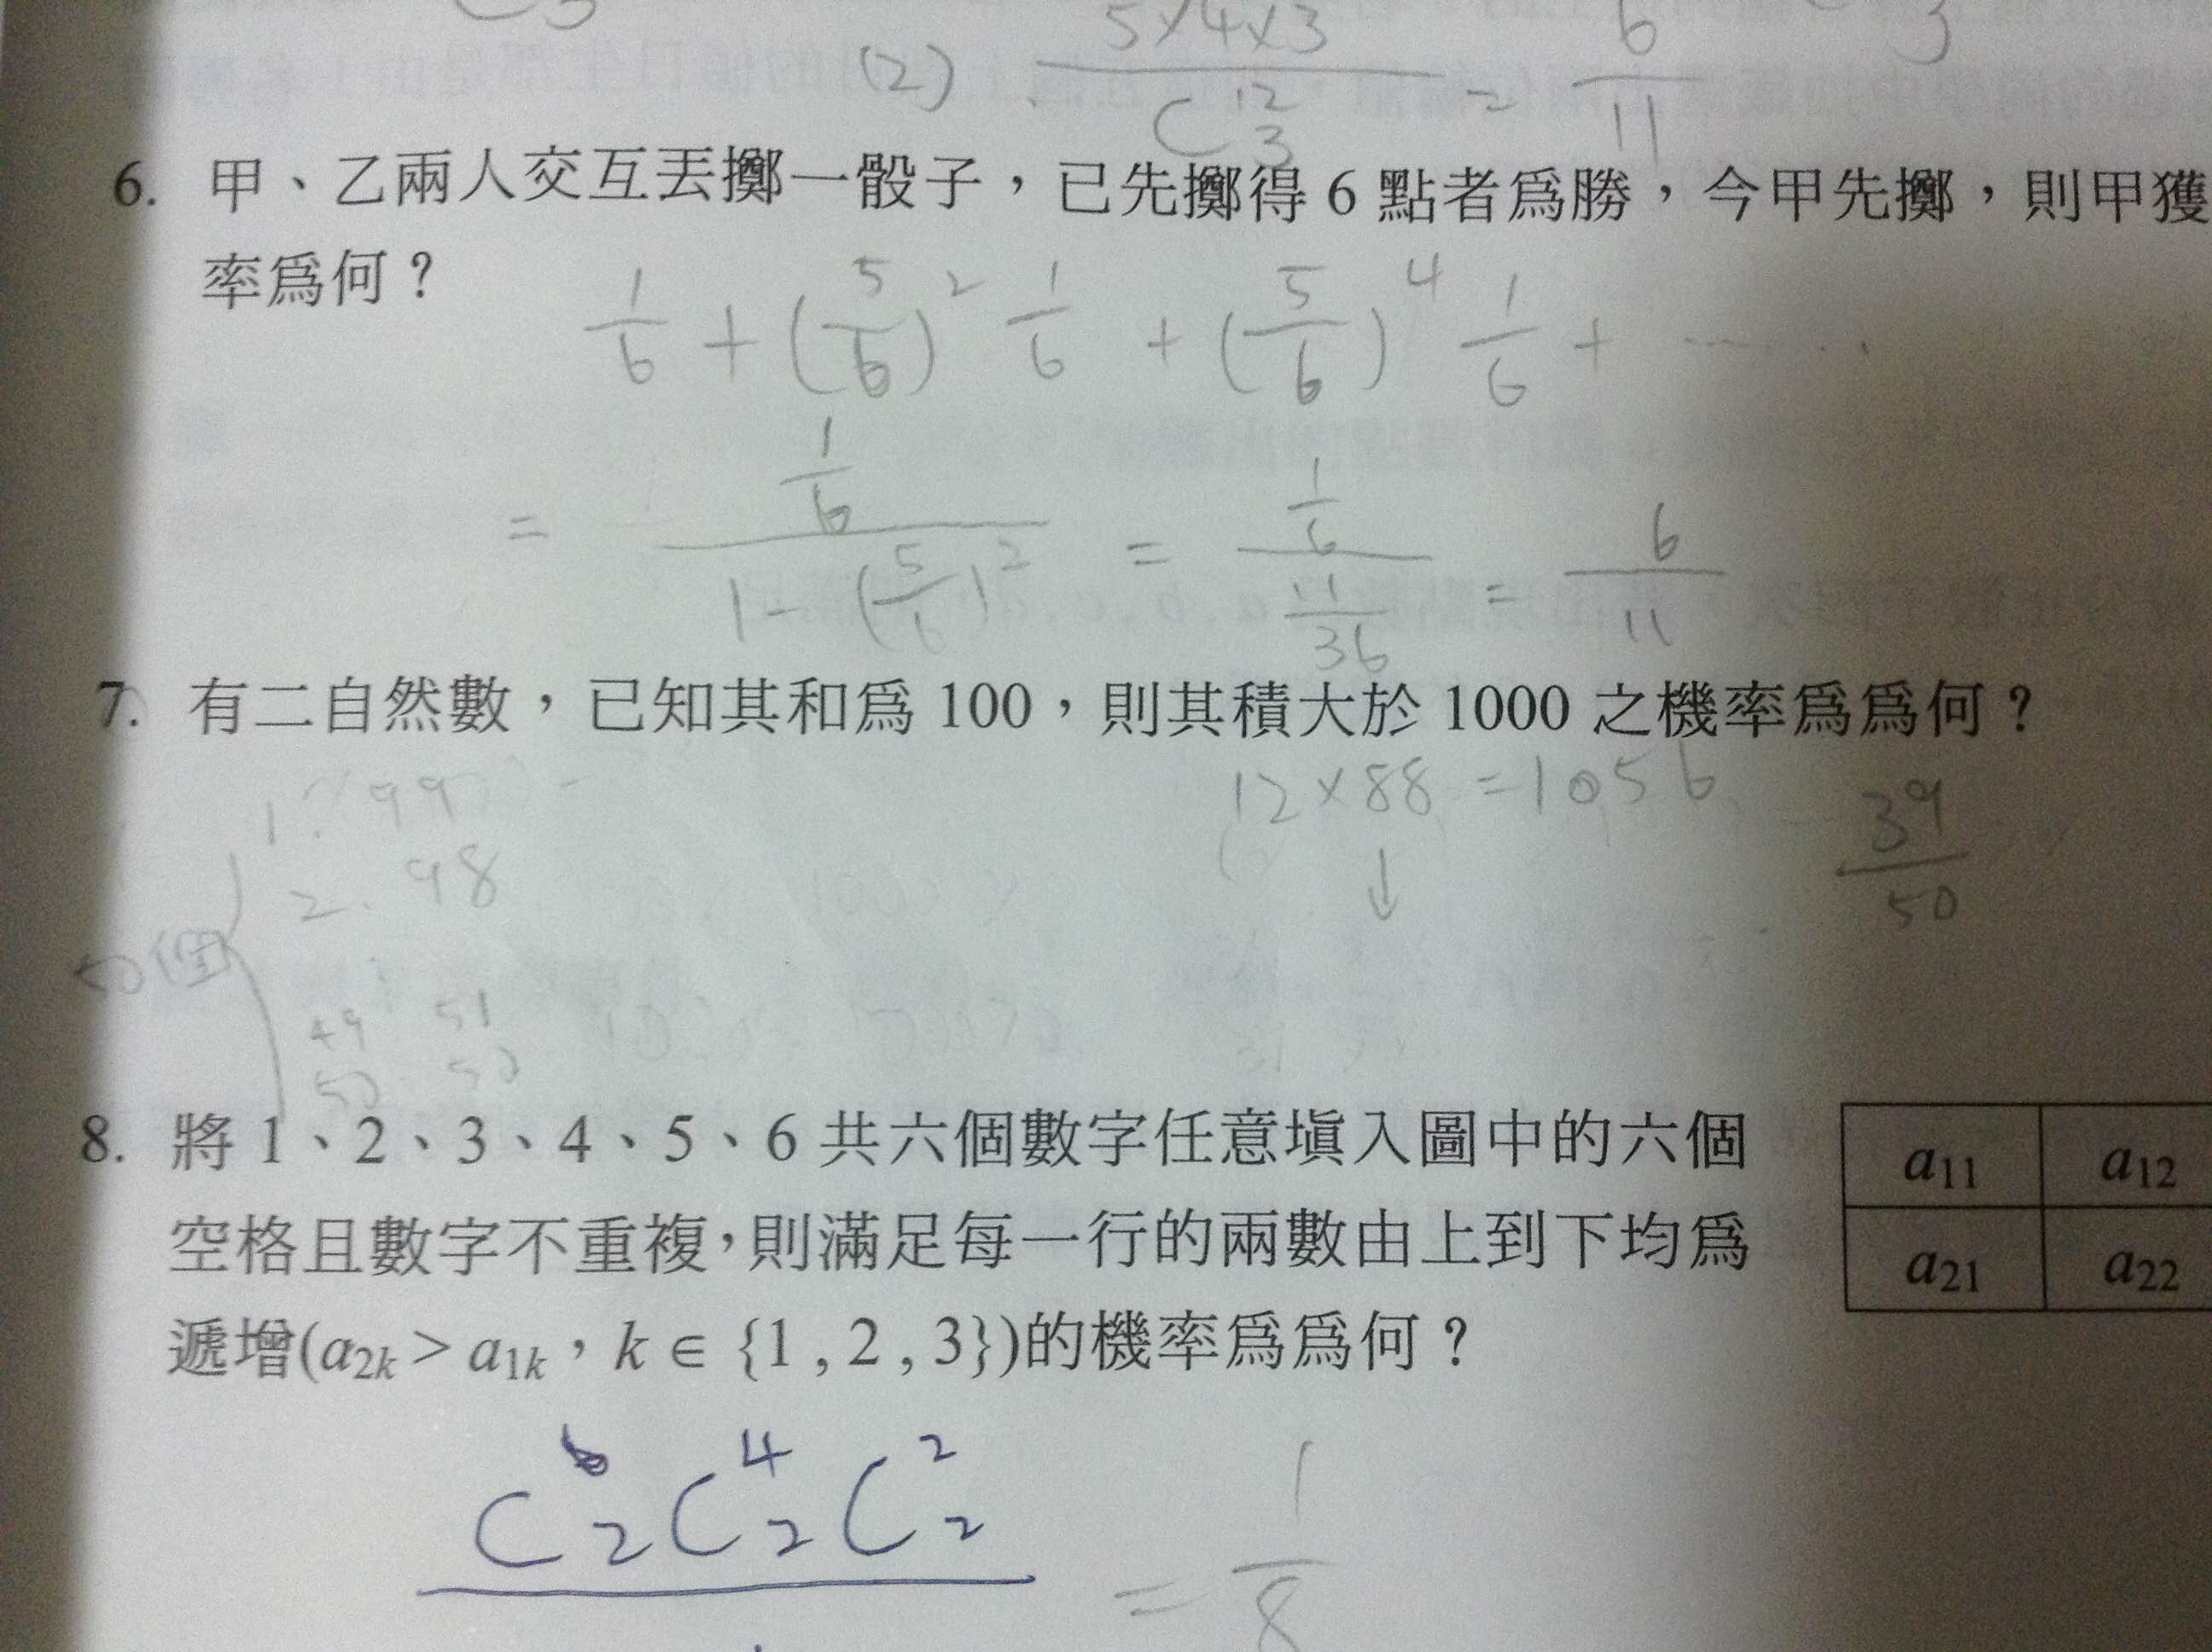 (2) 5×4×3 / C^12_3 = 6/11
6. 甲、乙兩人交互丟擲一骰子，已先擲得 6 點者為勝，今甲先擲，則甲獲
率為何？
1/6 + (5/6)^2 1/6 + (5/6)^4 1/6 + ......
= 1/6 / 1-(5/6)^2 = 1/6 / 11/36 = 6/11
7. 有二自然數，已知其和為 100，則其積大於 1000 之機率為為何？
1. 99 12×88 = 1056 39/50
2. 98 ↓
50個
49 51
50 50
8. 將 1、2、3、4、5、6 共六個數字任意填入圖中的六個
空格且數字不重複，則滿足每一行的兩數由上到下均為
遞增(a2k > a1k，k ∈ {1 , 2 , 3})的機率為為何？
a11 a12
a21 a22
C^6_2 C^4_2 C^2_2 = 1/8